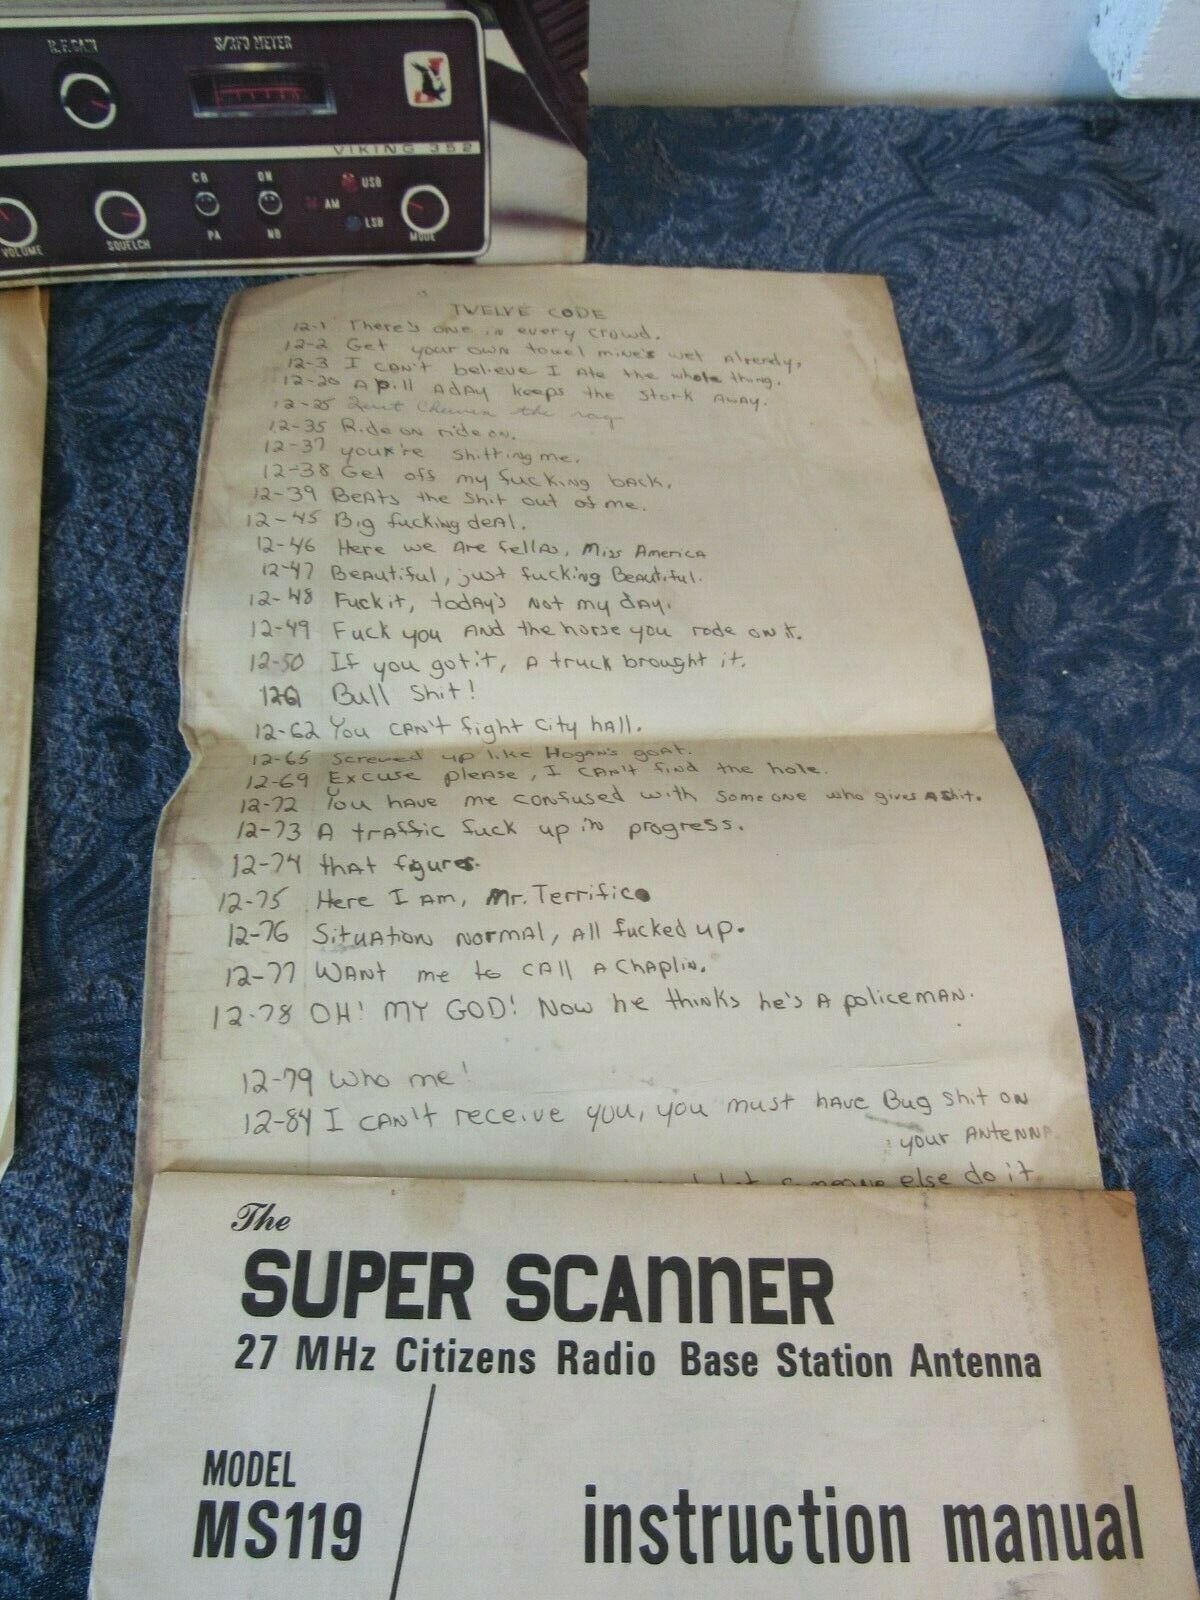 R.F. GAIN
S/RFO METER
VIKING 352
CB
ON
USB
AM
LSB
VOLUME
SQUELCH
PA
NB
MODE
TWELVE CODE
12-1 There's one in every crowd.
12-2 Get your own towel mine's wet already,
12-3 I can't believe I Ate the whole thing.
12-20 A pill A day keeps the stork Away.
12-25 the rag
12-35 Ride on ride on.
12-37 you're shitting me.
12-38 Get off my fucking back.
12-39 Beats the shit out of me.
12-45 Big fucking deal.
12-46 Here we Are fellas, Miss America
12-47 Beautiful, just fucking Beautiful.
12-48 Fuck it, today's not my day.
12-49 Fuck you And the horse you rode on it.
12-50 If you got it, A truck brought it.
Bull Shit!
12-62 You can't fight City hall.
12-65 Screwed up like Hogan's goat.
12-69 Excuse please, I can't find the hole.
12-72 You have me confused with someone who gives A shit.
12-73 A traffic fuck up in progress.
12-74 that figures.
12-75 Here I Am, Mr. Terrific
12-76 Situation normal, All fucked up.
12-77 Want me to call A Chaplin.
12-78 OH! MY GOD! Now he thinks he's A policeman.
12-79 Who me!
12-84 I can't receive you, you must have Bug shit on
your Antenna
else do it
The
SUPER SCANNER
27 MHz Citizens Radio Base Station Antenna
MODEL
MS119
instruction manual